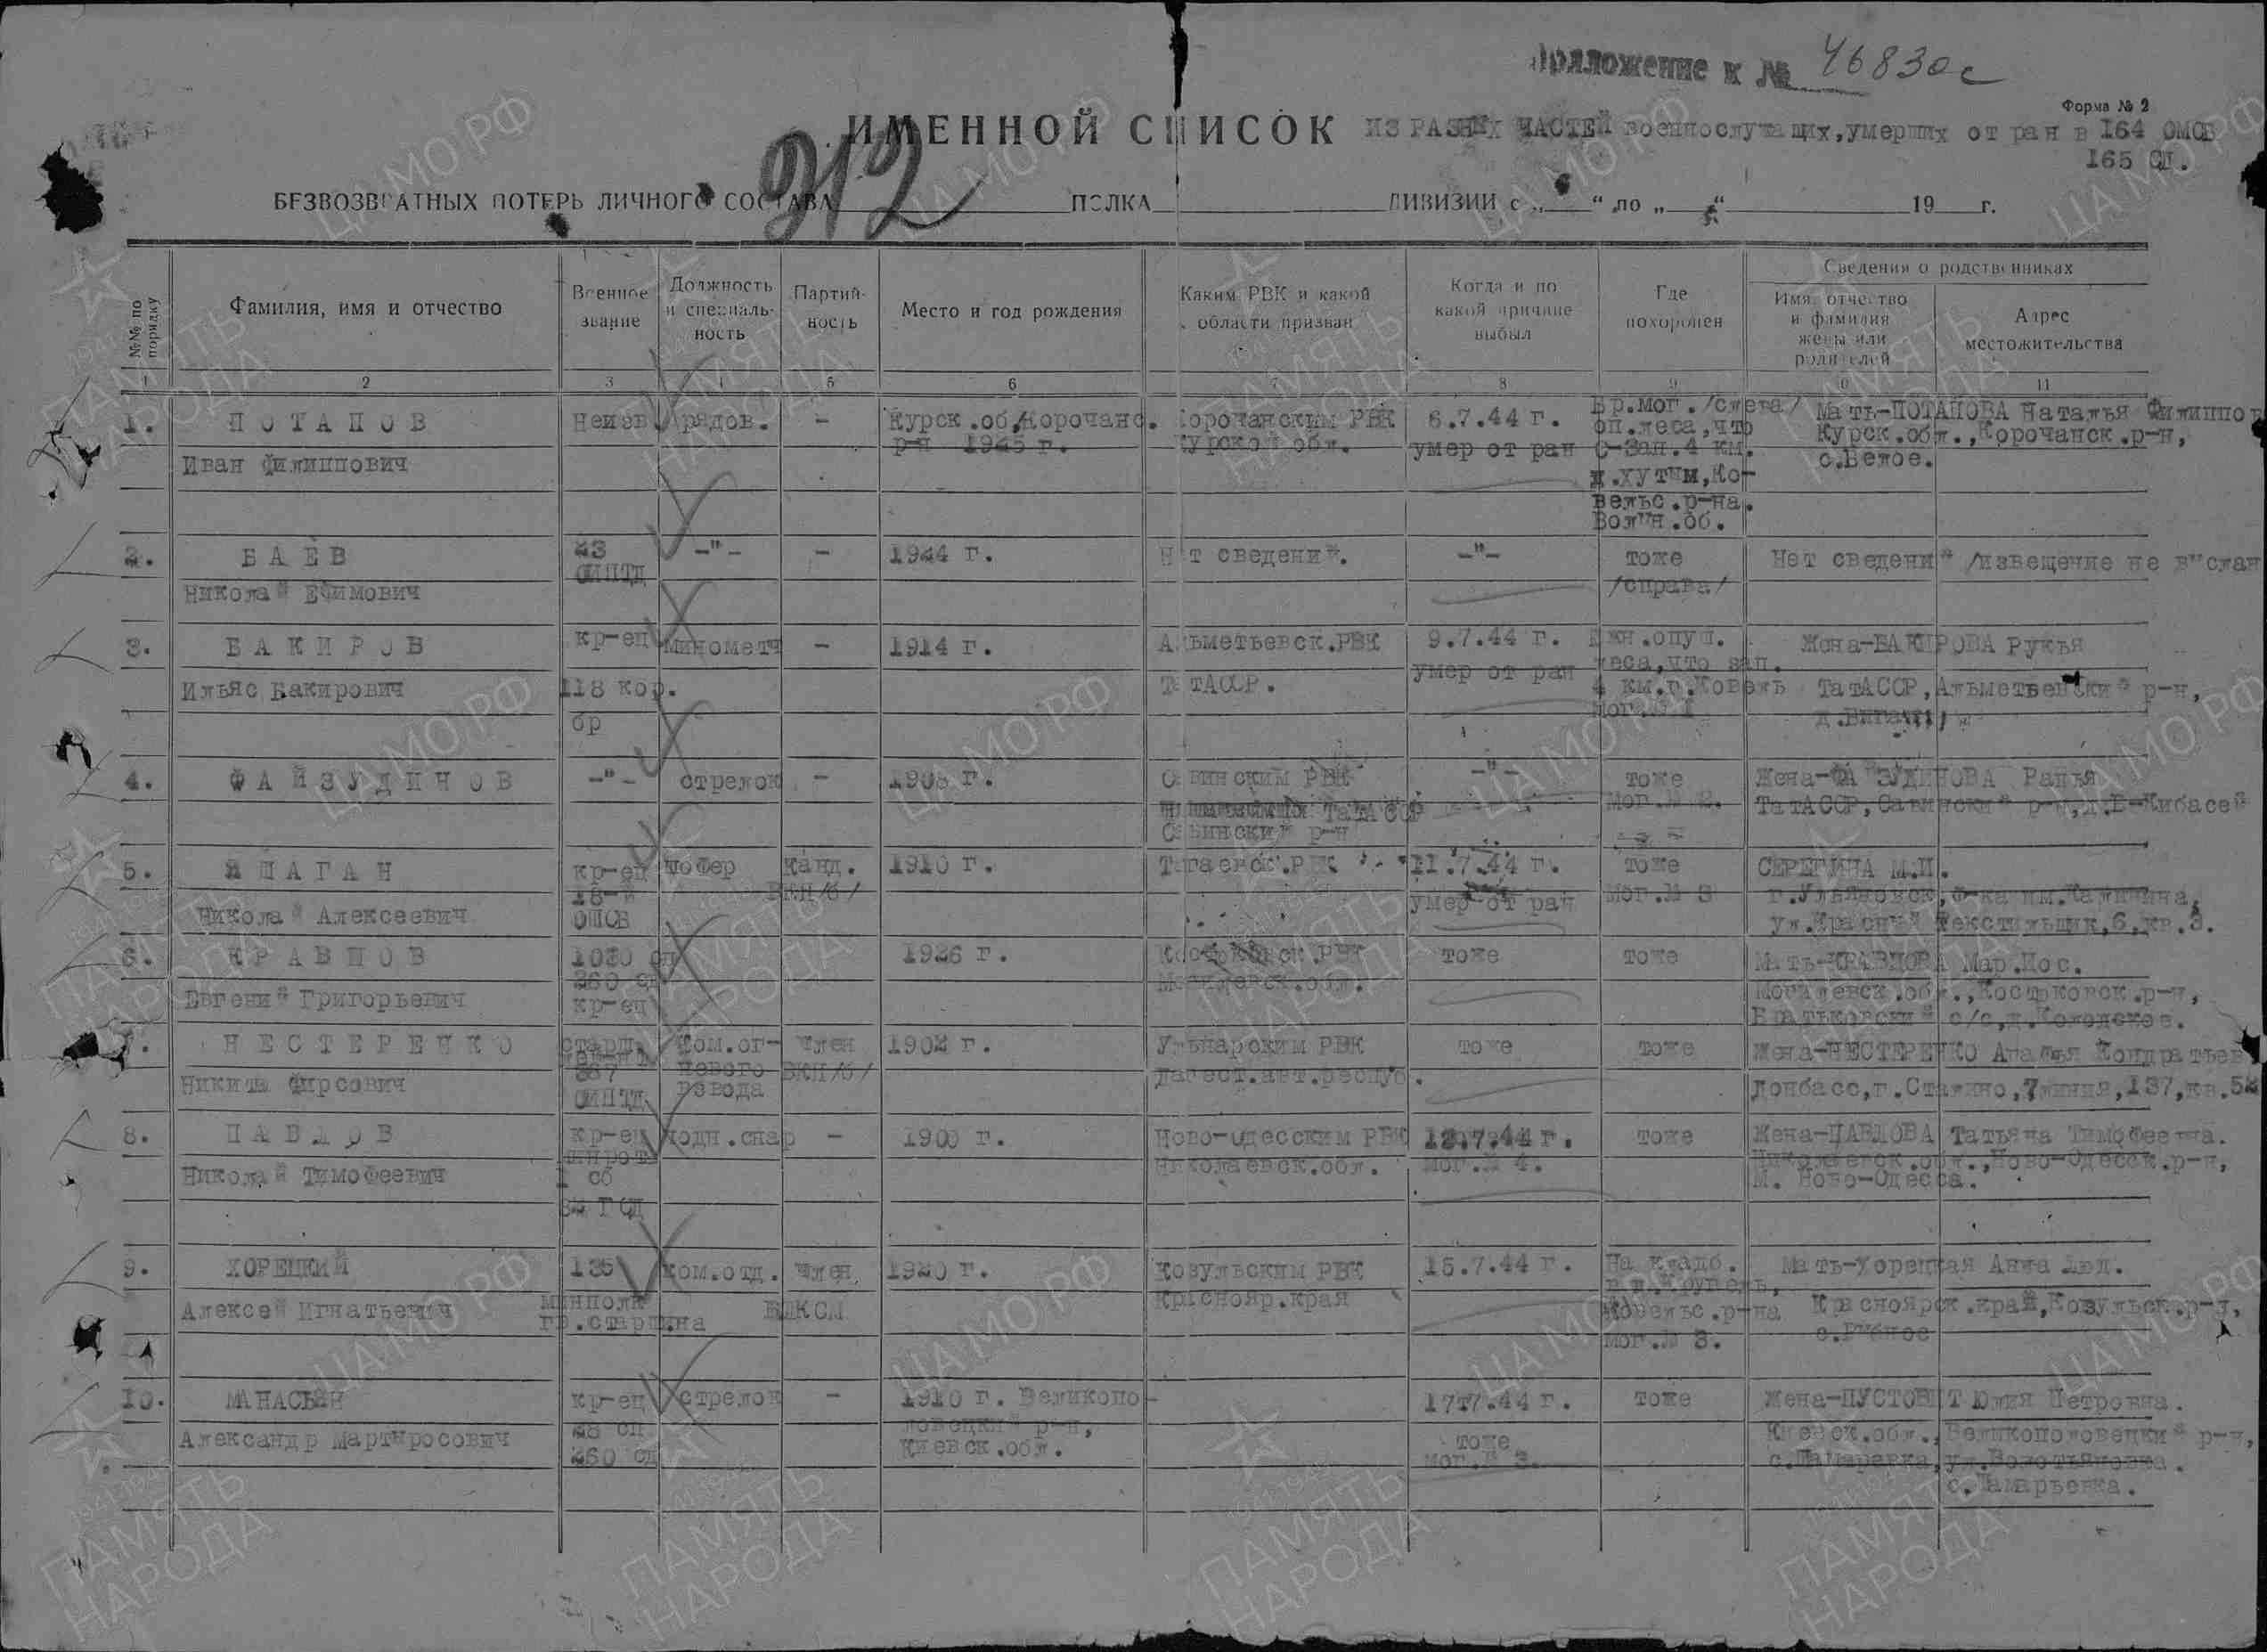 Приложение к № 46830с
Форма № 2
ИМЕННОЙ СПИСОК ИЗ РАЗНЫХ ЧАСТЕЙ военнослужащих, умерших от ран в 164 ОМСБ
165 СД.
312
БЕЗВОЗВРАТНЫХ ПОТЕРЬ ЛИЧНОГО СОСТАВА ПОЛКА ДИВИЗИИ с „ “ по „ “ 19 г.
№№ по порядку
Фамилия, имя и отчество
Военное звание
Должность и специаль-ность
Партий-ность
Место и год рождения
Каким РВК и какой области призван
Когда и по какой причине выбыл
Где похоронен
Сведения о родственниках
Имя, отчество и фамилия жены или родителей
Адрес местожительства
1 2 3 4 5 6 7 8 9 10 11
1. ПОТАПОВ Неизв рядов. - Курск.об,Корочанс. Корочанским РВК 6.7.44 г. Бр.мог./слева/ Мать-ПОТАПОВА Наталья Филиппов
р-н 1925 г. Курской обл. умер от ран оп.леса,что Курск.обл.,Корочанск.р-н,
Иван Филиппович С-Зап.4 км. с.Белое.
д.хутым,Ко-
вельс.р-на.
Волын.об.
2. БАЕВ 23 -"- - 1924 г. Нет сведений. -"- тоже Нет сведений /извещение не выслан
ОИПТД /справа/
Николай Ефимович
3. БАКИРОВ кр-ец минометч - 1914 г. Альметьевск.РВК 9.7.44 г. Южн.опуш. Жена-БАКИРОВА Рукья
леса,что зап.
Ильяс Бакирович 118 кор. ТатАССР. умер от ран 4 км.г.Ковель ТатАССР,Альметьевский р-н,
бр
4. ФАЙЗУДИНОВ -"- стрелок - 1908 г. Савинским РВК -"- тоже Жена-ФАЙЗУДИНОВА
ТатАССР мог.№ 2. ТатАССР,Савинский р-н,д.Б-Кибасей
Савинский р-н
5. ЯШАГАН кр-ец шофер Канд. 1910 г. Тагаевск.РВК 11.7.44 г. тоже СЕРЕГИНА М.И.
18-й ВКП/б/ умер от ран мог.№ 3 г.Ульяновск,Ф-ка им.Калинина,
Николай Алексеевич ул.Красный Текстильщик,6,кв.3.
6. КРАВЦОВ 1030 сп 1926 г. РВК тоже тоже Мать-КРАВЦОВА Мар.Иос.
260 сд Могилевск.обл. Могилевск.обл.,Костюковск.р-н,
Евгений Григорьевич кр-ец Братьковский с/с,
7. НЕСТЕРЕНКО старш. Ком.ог- член 1902 г. РВК тоже тоже Жена-НЕСТЕРЕНКО Агафья Кондратьев
лей-нт невого ВКП/б/ Дагест.авт.респуб.
Никита Фирсович ОИПТД взвода Донбасс,г.Сталино,7 линия,137,кв.52
8. ПАВЛОВ кр-ец подн.снар - 1900 г. Ново-Одесским РВК 12.7.44 г. тоже Жена-ПАВЛОВА Татьяна Тимофеевна.
Николаевск.обл. мог.№ 4. Николаевск.обл.,Ново-Одесск.р-н,
Николай Тимофеевич сб М. Ново-Одесса.
ГСД
9. ХОРЕЦКИЙ 135 ком.отд. член 1920 г. Козульским РВК 15.7.44 г. На кладб. Мать-Хорецкая Анна
минполк ВЛКСМ Краснояр.края в д.Крупель,
Алексей Игнатьевич гв.старшина Ковельс.р-на Красноярск.край,Козульск.р-н,
мог.№ 3.
10. МАНАСЬЯН кр-ец стрелок - 1910 г. Великопо- 17.7.44 г. тоже Жена-ПУСТОВИТ Юлия Петровна.
28 сп ловецкий р-н, тоже Киевск.обл.,Великополовецкий р-н,
Александр Мартыросович 260 сд Киевск.обл. мог.№ 3.
с.Шамарьевка.